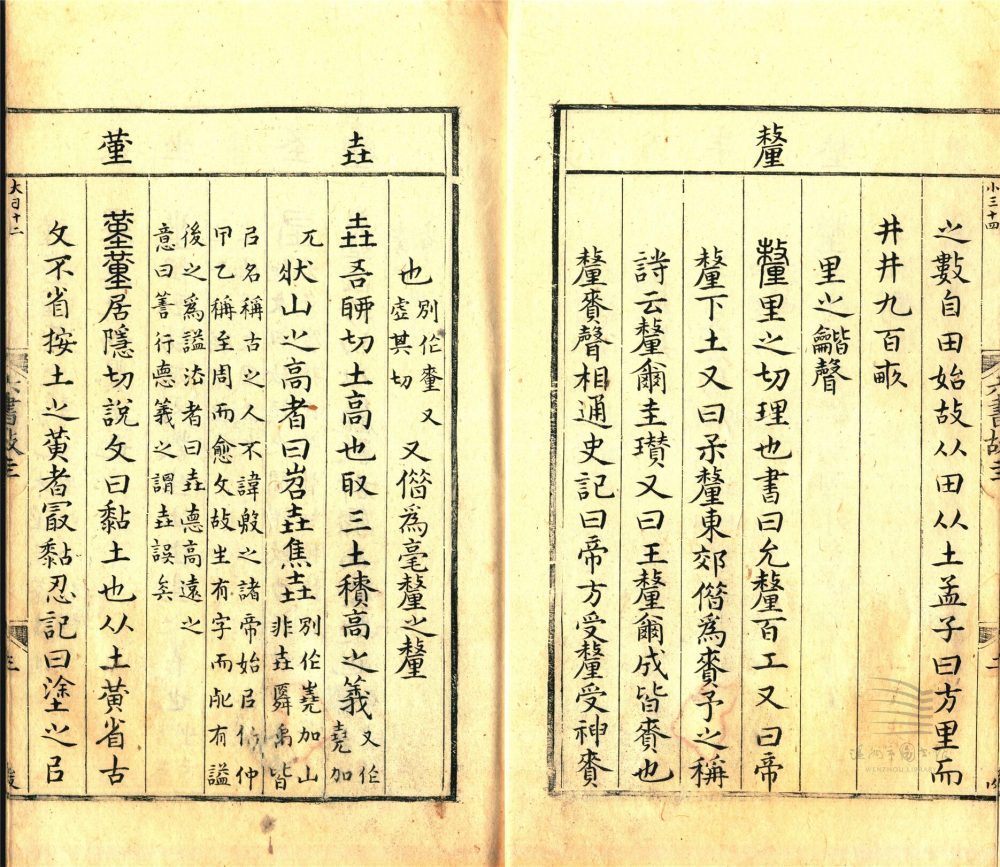 釐
小三十四
之數自田始故从田从土孟子曰方里而
井井九百畞
里之龤聲
釐里之切理也書曰允釐百工又曰帝
釐下土又曰釐東郊偕為賚予之稱
詩云釐爾圭瓚又曰王釐爾成皆賚也
釐賚聲相通史記曰帝方受釐受神賚
六書故
二
WENZHOU LIBRARY
垚
堇
也別作
虛其切
又偕為毫釐之釐
垚吾聊切土高也取三土積高之義又作
堯加
兀狀山之高者曰岧垚焦垚別作嶤加山
非垚舜禹皆
㠯名稱古之人不諱殷之諸帝始㠯伯仲
甲乙稱至周而愈文故生有字而死有謚
後之為謚法者曰垚悳高遠之
意曰善行悳義之謂垚誤矣
堇居隱切說文曰黏土也从土黃省古
文不省按土之黃者最黏忍記曰塗之㠯
大曰十二
六書故
三